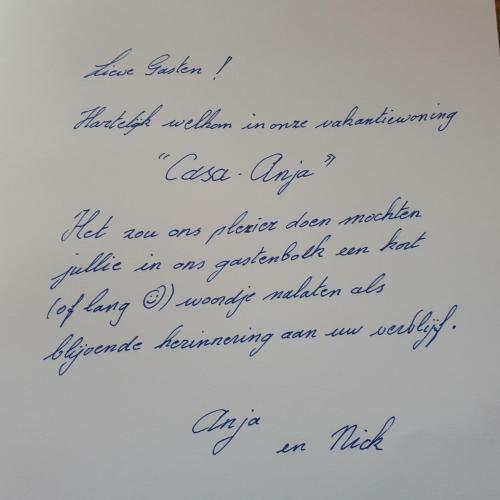 Lieve Gasten !
Hartelijk welkom in onze vakantiewoning
"Casa - Anja"
Het zou ons plezier doen mochten
jullie in ons gastenboek een kort
(of lang ☺) woordje nalaten als
blijvende herinnering aan uw verblijf.
Anja
en Nick